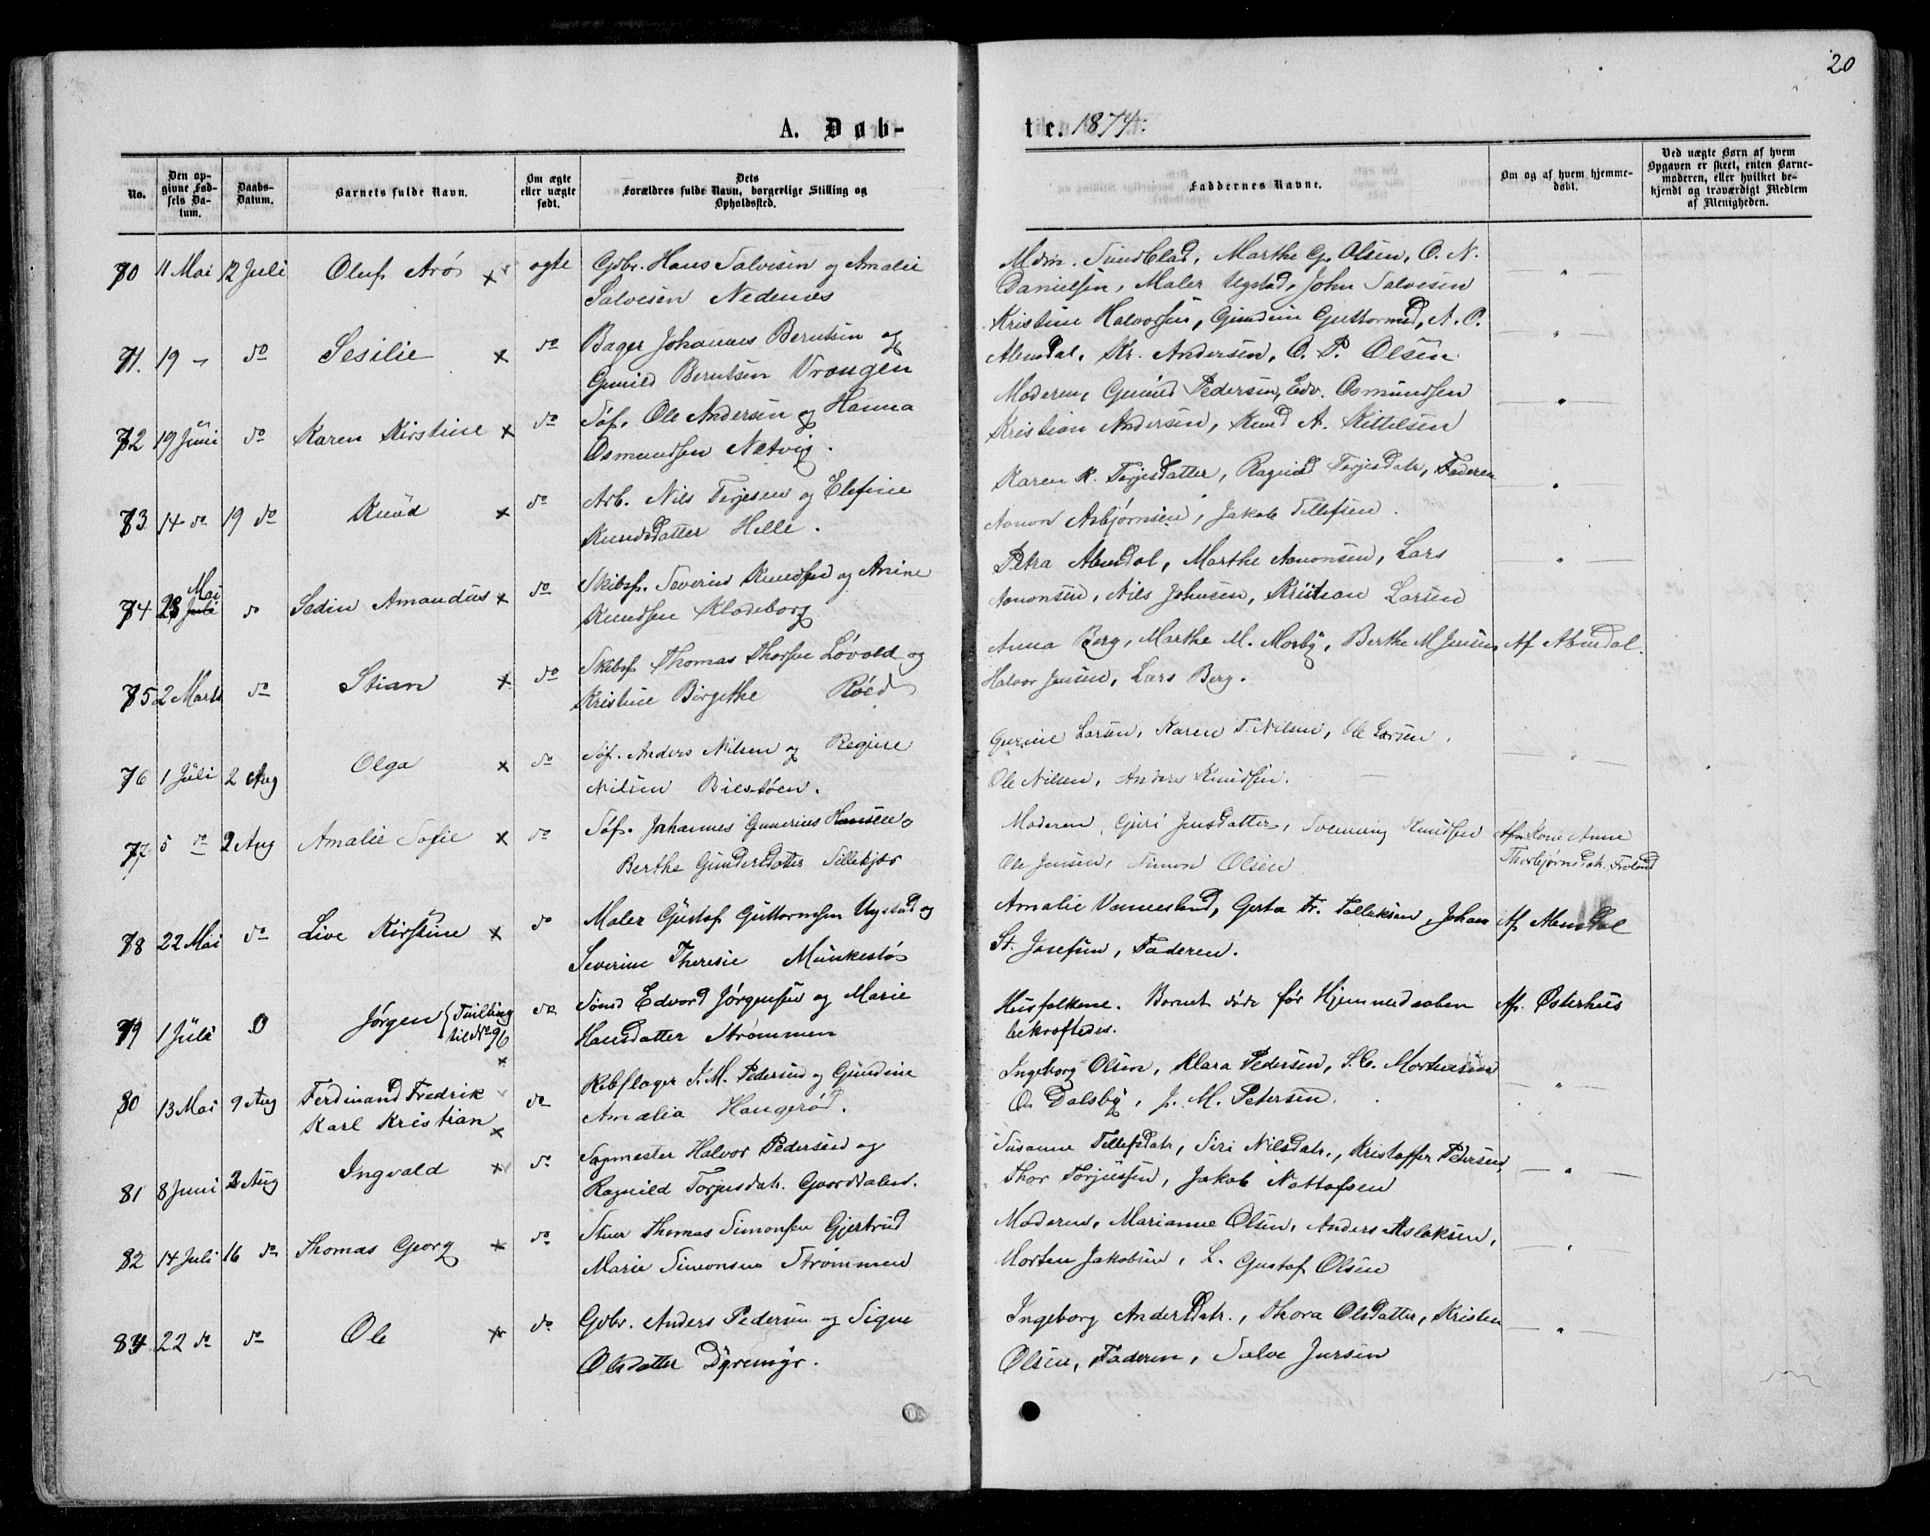 20
A. Døb-
te. 1874.
No.
Den opgivne Fødsels Datum.
Daabs-Datum.
Barnets fulde Navn.
Om ægte eller uægte født.
Dets Forældres fulde Navn, borgerlige Stilling og Opholdssted.
Faddernes Navne.
Om og af hvem hjemmedøbt.
Ved uægte Børn af hvem Opgaven er skeet, enten Barnemoderen, eller hvilket bekjendt og troværdigt Medlem af Menigheden.
70 11 Mai 12 Juli Oluf Arø x ægte Gdbr. Hans Salvesen og Amalie
Salvesen Nedenæs
Mdm. Sundblad, Marthe G. Olsen, O. N.
Danielsen, Maler Ugstad, John Salvesen
71. 19 - do Sesilie x do Bager Johannes Berntsen og
Gunild Berntsen Vrængen
Kristine Halvorsen, Gundine Guttormsd, A. P.
Alendal, Kr. Andersen, O. P. Olsen
72 19 Juni do Karen Kirstine x do Søf. Ole Andersen og Hanna
Osmundsen Natvig.
Moderen, Gunild Pedersen, Edv. Osmundsen
Kristian Andersen, Knud A. Kittelsen
73 14 do 19 do Knud x do Arb. Nils Terjesen og Elefine
Knudsdatter Helle.
Karen K. Terjesdatter, Ragnild Terjesdatr, Faderen
Aanon Asbjørnsen, Jakob Tellefsen.
74 23 Mai do Sedin Amandus x do Skibsf. Severin Knudsen og Anine
Knudsen Klodeborg
Petra Alendal, Marthe Aanonsen, Lars
Aanonsen, Nils Johnsen, Kristian Larsen
75 2 Marts do Stian x do Skibsf Thomas Thorsen Løvold og
Kristine Birgethe Røed
Anna Berg, Marthe M. Morby, Berthe M Jensen Af Alendal.
Halvor Jensen, Lars Berg.
76 1 Juli 2 Aug Olga x do Søf. Anders Nilsen og Regine
Nilsen Bilstøen.
Gurine Larsen, Karen T. Nilsen, Ole Larsen,
Ole Nilsen, Anders Knudsen.
77. 5 do 2 Aug Amalie Sofie x do Søf. Johannes Gunerius Hansen o
Berthe Gundersdatter Sillekjær
Moderen, Guri Jensdatter, Svenning Knudsen Af Kone Anne
Ole Jensen, Simon Olsen Thorbjørnsdatr. Froland
78 22 Mai do Live Kirstine x do Maler Gustaf Guttormsen Ugstad og
Severine Theresie Munkestø
Amalie Vanneslund, Gerta Fr. Tellefsen, Johan Af Alendal
St. Josefsen, Faderen.
79 1 Juli 0 Jørgen {Tvilling til No 96 x do Tømd Edvard Jørgensen og Marie
Hansdatter Strømmen
Husfolkene. Barnet døde før Hjemmedaaben Af. Østerhus
bekræftedes.
80 13 Mai 9 Aug Ferdinand Fredrik do Rebslager J. M. Pedersen og Gundine
Karl Kristian x Amalia Haugerød.
Ingeborg Olsen, Klara Pedersen, S. C. Mortensen
O. Dalsby, J. M. Petersen.
81 8 Juni 2 Aug Ingvald x do Sagmester Halvor Pedersen og
Ragnild Torjusdatr. Gaardsalen.
Susanne Tellefsdatr, Siri Nilsdatr., Kristoffer Pedersen
Thor Torjussen, Jakob Nottofsen
82 14 Juli 16 do Thomas Georg x do Stuer Thomas Simonsen Gjertrud
Marie Simonsen Strømmen
Moderen, Marianne Olsen, Anders Aslaksen,
Morten Jakobsen, L. Gustaf Olsen
83 22 do do Ole x do Gdbr. Anders Pedersen og Signe
Olsdatter Dyremyr.
Ingeborg Andersdatr., Thora Olsdatter, Kristen
Olsen, Faderen, Salve Jursen